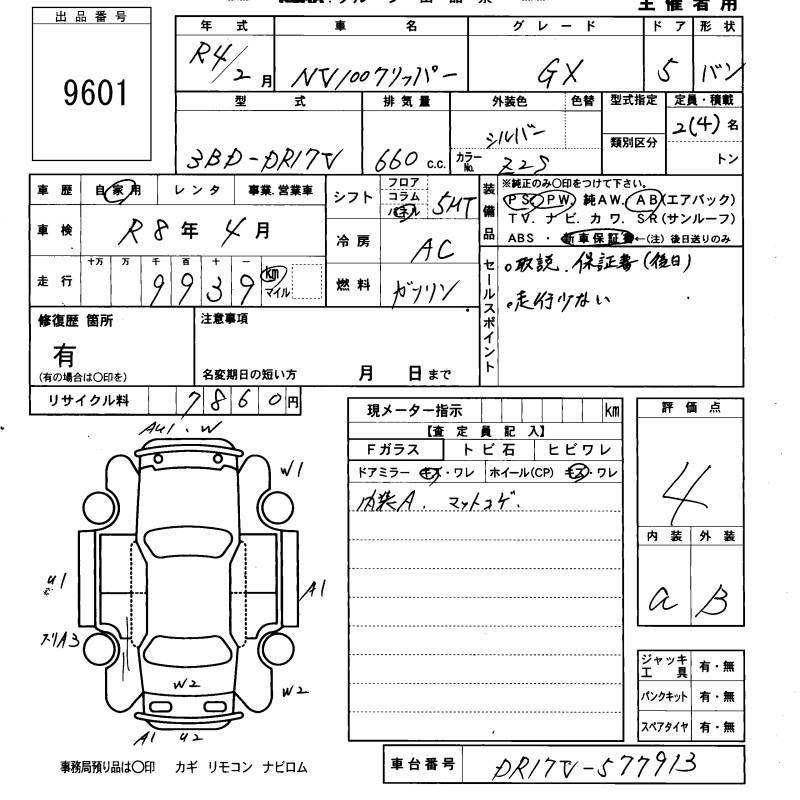 主催者用
出品番号
9601
年式 車名 グレード ドア 形状
R4/2月 NV100クリッパー GX 5 バン
型式 排気量 外装色 色替 型式指定 定員・積載
3BD-DR17V 660c.c. シルバー カラーNo. Z2S 類別区分 2(4)名
トン
車歴 自家用 レンタ 事業.営業車
車検 R8年4月
走行 十万 万 千 百 十 一
9939 km マイル
シフト フロア コラム パネル 5MT
冷房 AC
燃料 ガソリン
装備品 ※純正のみ○印をつけて下さい。
PS. PW. 純AW. AB(エアバック)
TV. ナビ. カワ. SR(サンルーフ)
ABS ・ 新車保証書 ←(注) 後日送りのみ
セールスポイント
。取説.保証書(後日)
。走行少ない
修復歴 箇所 注意事項
有
(有の場合は○印を) 名変期日の短い方 月 日まで
リサイクル料 7860円
現メーター指示 km
【査定員記入】
Fガラス トビ石 ヒビワレ
ドアミラー キズ・ワレ ホイール(CP) キズ・ワレ
内装A. マットコゲ.
評価点
4
内装 外装
a B
ジャッキ工具 有・無
パンクキット 有・無
スペアタイヤ 有・無
AU1.W
W1
U1
A1
A3
W2 W2
A1 U2
事務局預り品は○印 カギ リモコン ナビロム
車台番号 DR17V-577913